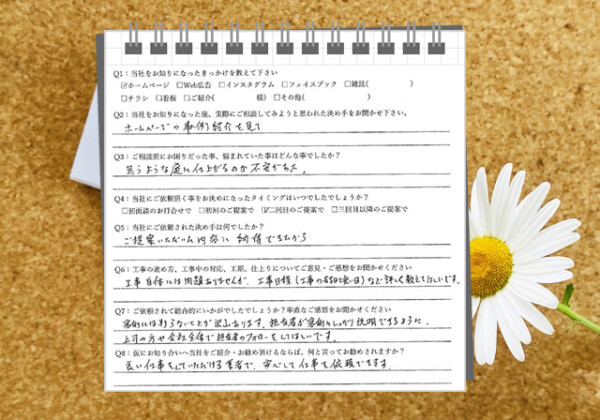 Q1：当社をお知りになったきっかけを教えて下さい
☑ホームページ □Web広告 □インスタグラム □フェイスブック □雑誌( )
□チラシ □看板 □ご紹介( 様) □その他( )
Q2：当社をお知りになった後、実際にご相談してみようと思われた決め手をお聞かせ下さい。
ホームページの事例紹介を見て
Q3：ご相談前にお困りだった事、悩まれていた事はどんな事でしたか？
思うような庭に仕上がるのか不安だった。
Q4：当社にご依頼頂く事をお決めになったタイミングはいつでしたでしょうか？
□初面談のお打合せで □初回のご提案で ☑二回目のご提案で □三回目以降のご提案で
Q5：当社に依頼された決め手は何でしたか？
ご提案いただいた内容に納得できたから
Q6：工事の進め方、工事中の対応、工期、仕上りについてご意見・ご感想をお聞かせください
工事自体には問題ありませんが、工事日程(工事の有る日と無い日)など詳しく教えてほしいです。
Q7：ご依頼されて総合的にいかがでしたでしょうか？率直なご感想をお聞かせください
客側には判らないことが沢山あります。担当者が客側にしっかり説明できるように、
上司の方や会社全体で担当者のフォローをしてほしいです。
Q8：仮にお知り合いへ当社をご紹介・お勧め頂けるならば、何と言ってお勧めされますか？
良い仕事をしていただける業者で、安心して仕事を依頼できます。